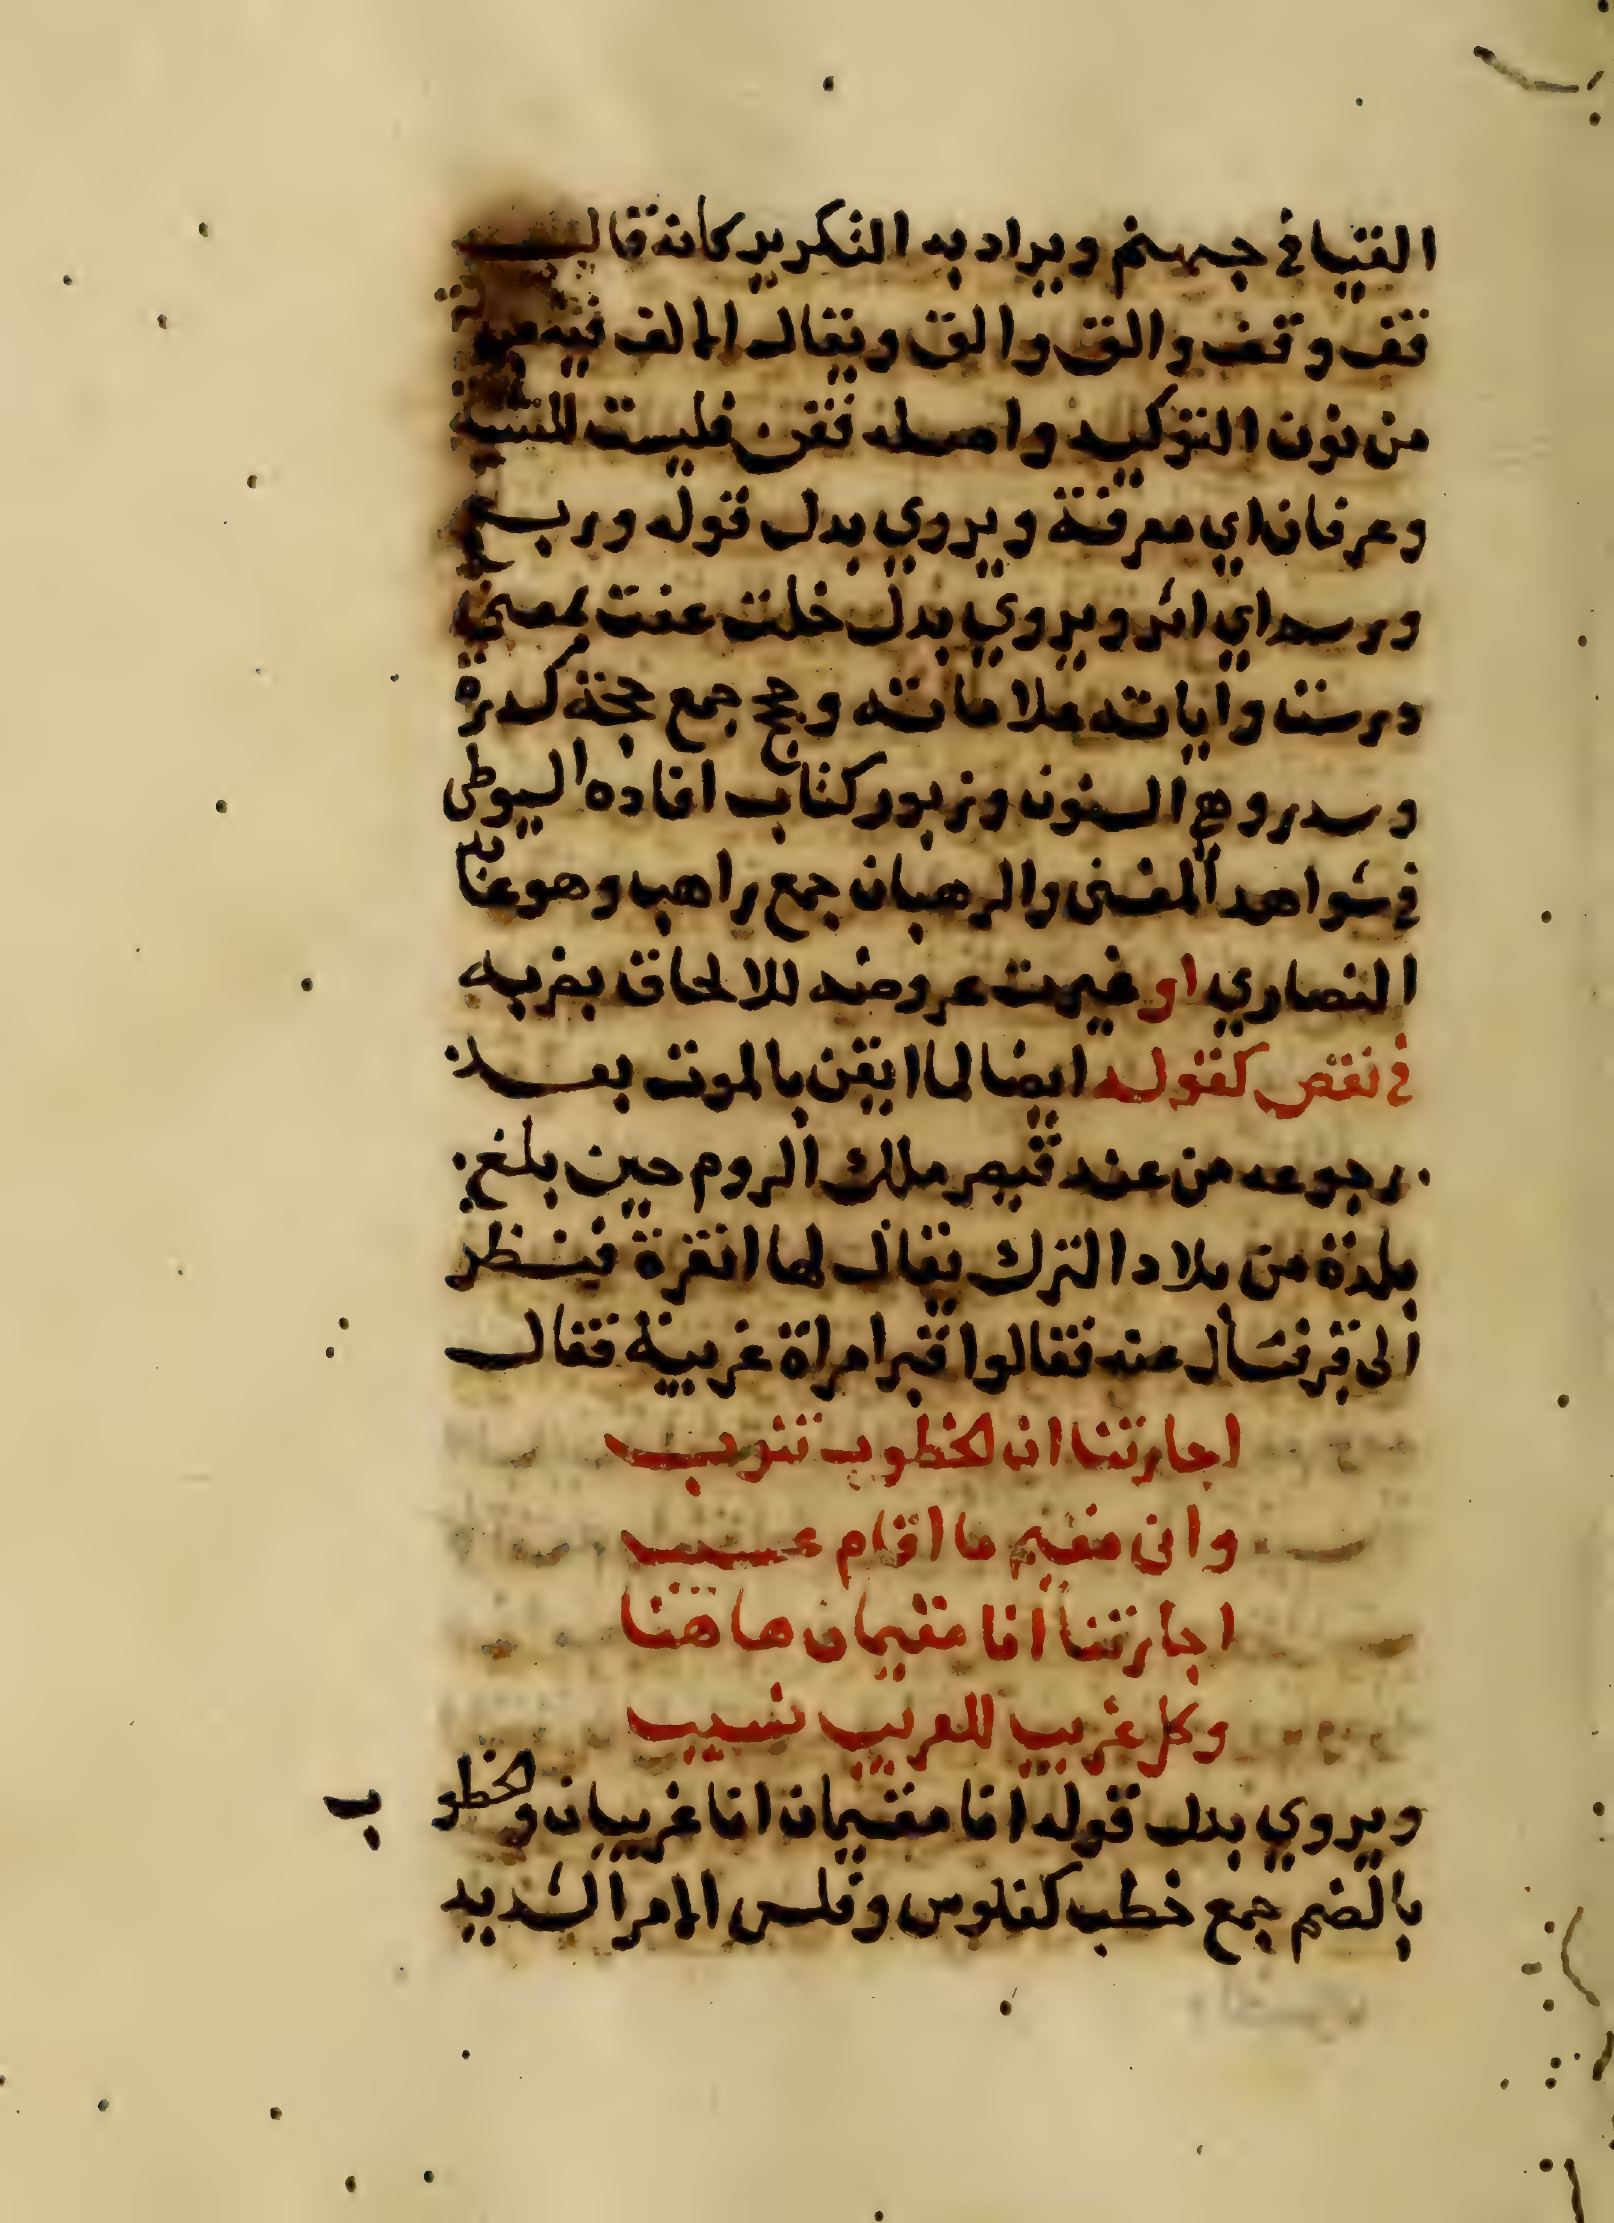 القيا في جهنم ويراد به التكرير كانه قال
قف وقف والق والق ويقال الالف فيه
من نون التوكيد واصله قفن فليست للتثنية
وعرفان اي معرفة ويروي بدل قوله وربع
ورسم اي اثر ويروي بدل خلت عفت بمعني
درست واياته علاماته وحجج جمع حجة كسدرة
وسدر وهي السنون وزبور كتاب افاده السيوطى
في شواهد المغنى والرهبان جمع راهب وهو عابد
النصاري او غيرت عروضه للالحاق بضربه
في نقص كقوله ايضا لما ايقن بالموت بعد
رجوعه من عند قيصر ملك الروم حين بلغ
بلدة من بلاد الترك يقال لها انقرة فنظر
الى قبر فسأل عنه فقالوا قبر امراة غريبة فقال
اجارتنا ان الخطوب تنوب
وانى مقيم ما اقام عسيب
اجارتنا انا مقيمان هاهنا
وكل غريب للغريب نسيب
ويروي بدل قوله انا مقيمان انا غريبان والخطوب
بالضم جمع خطب كفلوس وفلس الامر الشديد